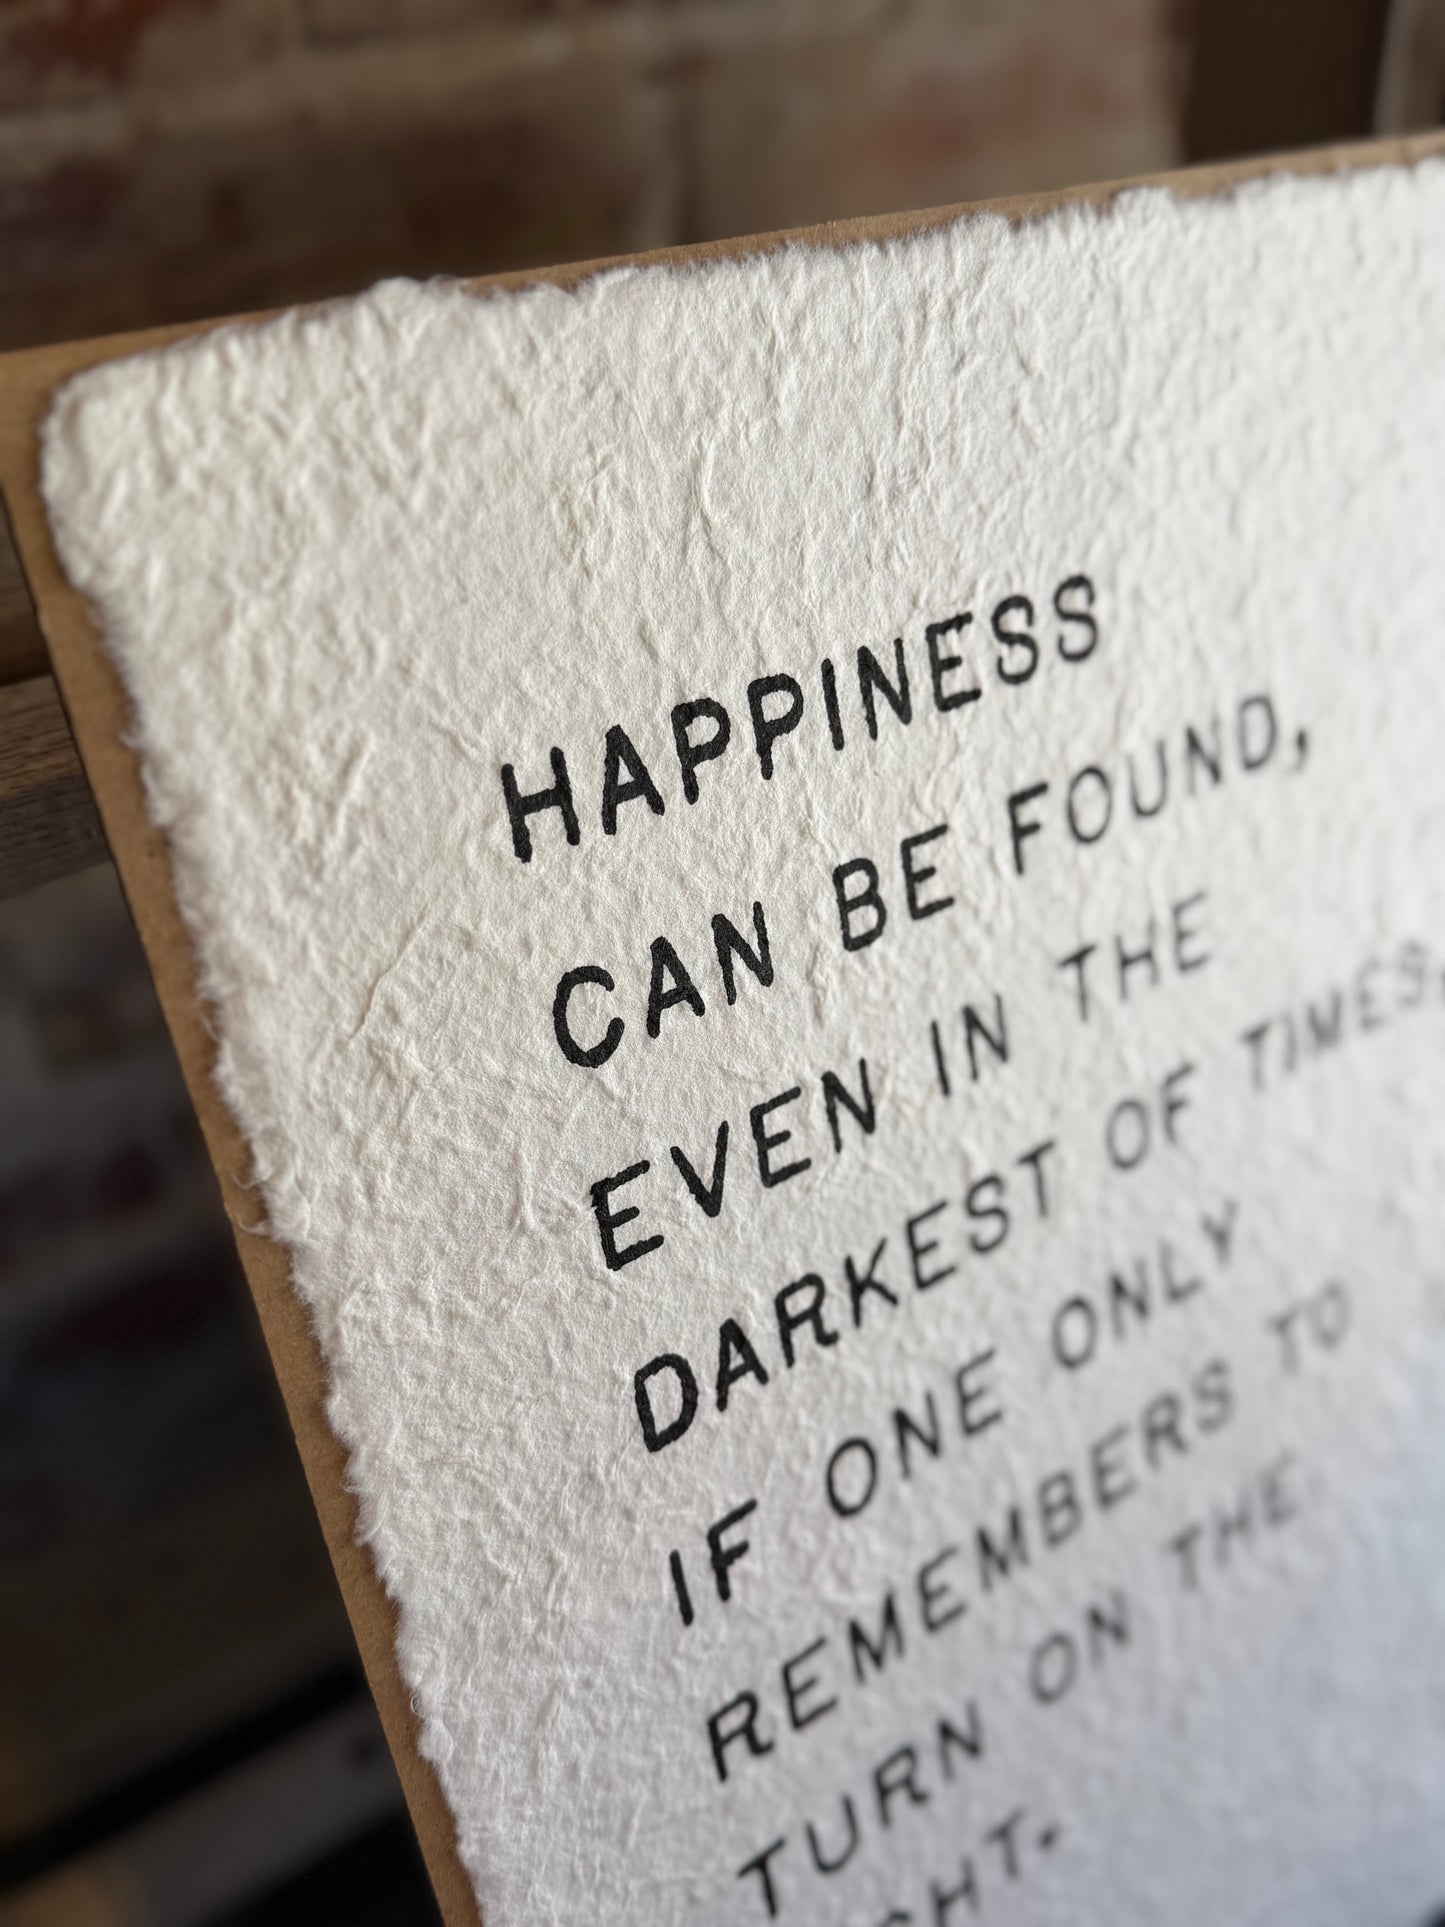 HAPPINESS
CAN BE FOUND,
EVEN IN THE
DARKEST OF TIMES,
IF ONE ONLY
REMEMBERS TO
TURN ON THE